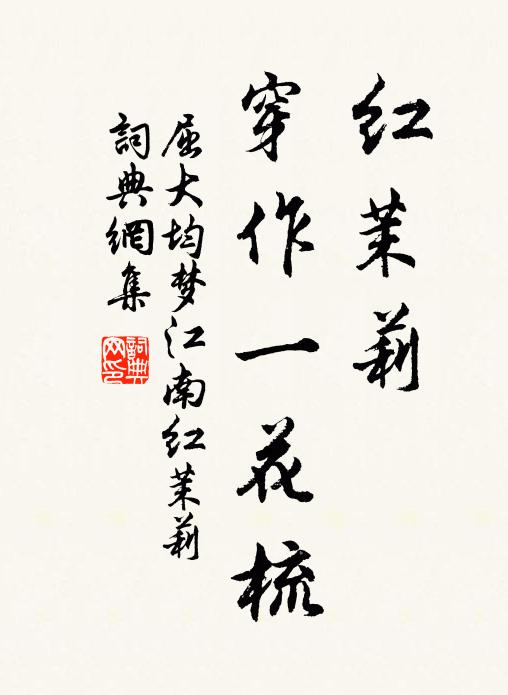 红茉莉
穿作一花梳
屈大均梦江南红茉莉
詞典網集
詞典网印